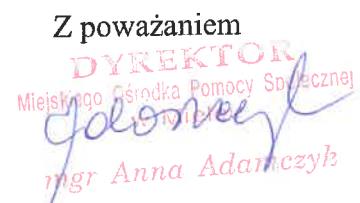 Z poważaniem
DYREKTOR
Miejskiego Ośrodka Pomocy Społecznej
mgr Anna Adamczyk